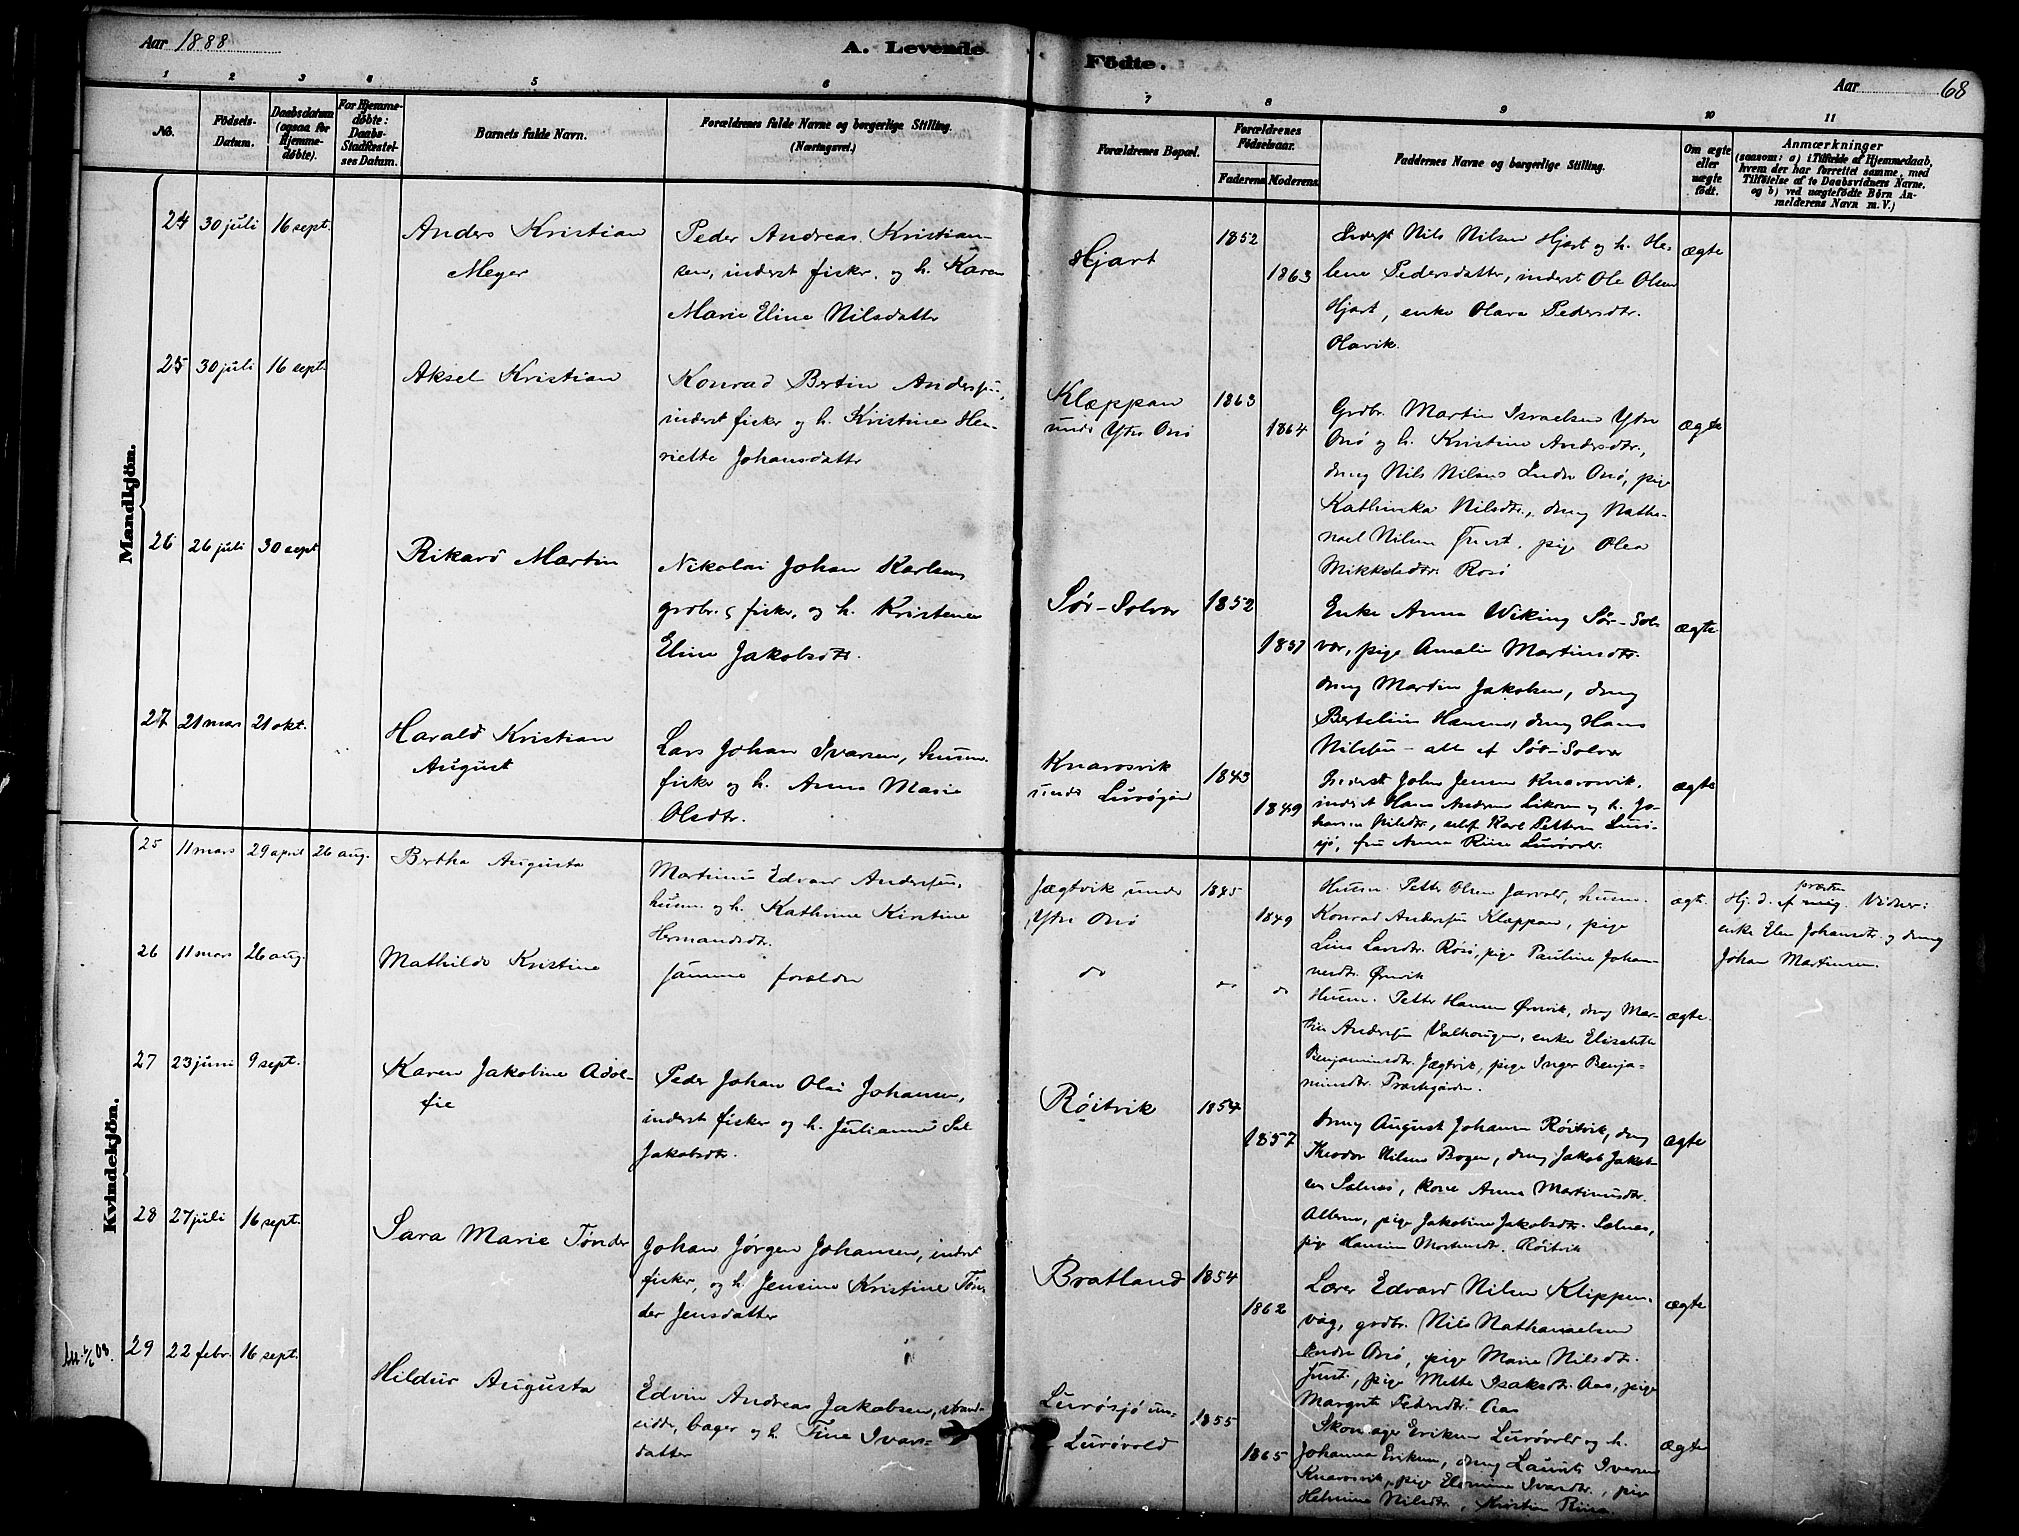 Aar 1888
A. Levende
Fødte.
Aar
68
1 2 3 4 5 6 7 8 9 10 11
No.
Fødsels-
Datum.
Daabsdatum
(ogsaa for
Hjemme-
døbte).
For Hjemme-
døbte:
Daabs-
Stadfæstel-
ses Datum.
Barnets fulde Navn.
Forældrenes fulde Navne og borgerlige Stilling.
(Næringsvei.)
Forældrenes Bopæl.
Forældrenes
Fødselsaar.
Faderens. Moderens.
Faddernes Navne og borgerlige Stilling.
Om ægte
eller
uægte
født.
Anmærkninger
(saasom: a) i Tilfælde af Hjemmedaab,
hvem der har forrettet samme, med
Tilføielse af to Daabsvidners Navne,
og b) ved uægtefødte Børn An-
melderens Navn m. V.)
Mandkjøn.
24 30 juli 16 sept.
Anders Kristian
Meyer
Peder Andreas Kristian-
sen, inderst fisker, og h. Karen
Marie Eline Nilsdatter
Hjart
1852
1863
Inderst Nils Nilsen Hjart og h. He-
lene Pedersdatter, inderst Ole Olsen
Hjart, enke Olava Pedersdtr.
Olavik.
ægte
25 30 juli 16 sept.
Aksel Kristian
Konrad Bertin Andersen,
inderst fisker og h. Kristine Hen-
riette Johansdatter
Klæppan
under Ytre Onø
1863
1864
Grdbr. Martin Israelsen Ytre
Onø og h. Kristine Andersdtr.,
dreng Nils Nilsens Indre Onø, pige
Kathinka Nilsdtr., dreng Natha-
nael Nilsen, pige Olea
Mikkelsdtr. Rosø
ægte
26 26 juli 30 sept
Rikard Martin
Nikolai Johan Karlsen
grdbr. & fisker, og h. Kristense
Eline Jakobsdtr.
Sør-Solvær
1852
1857
Enke Anna Wiking Sør-Sol-
vær, pige Amalie Martinsdtr.
dreng Martin Jakobsen, dreng
Bertelius Hansen, dreng Hans
Nilsen - alle af Sør-Solvær
ægte
27 21 mars 21 okt.
Harald Kristian
August
Lars Johan Ivarsen, husm.
fisker og h. Anna Marie
Olsdtr.
Knarosvik
under Lurøgård
1843
1849
Inderst John Jensen Knarosvik,
inderst Hans Andreas og h. Jo-
hanna Nilsdtr., Karl Pettersen Lurø-
sjø, fru Anna Riise Lurøvold.
ægte
Kvindekjøn.
25 11 mars 29 april 26 aug.
Bertha Augusta
Martinus Edvard Andersen,
husm. og h. Kathrine Kirstine
Hermandsdtr.
Jægtvik under
Ytre Onø
1845
1849
Husm. Petter Olsen Jarvold, husm.
Konrad Andersen Klæppan, pige
Lina Larsdtr. Rosø, pige Pauline Johan-
nesdtr. Ørsvik
ægt.
Hj. d. af præsten. Vidner:
enke Elen Johansdtr. og dreng
Johan Martinsen.
26 11 mars 26 aug.
Mathilde Kristine
samme forældre
do
do
do
Husm. Petter Hansen Ørsvik, dreng Mar-
tin Andersen Valhaugen, enke Elisabeth
Benjaminsdtr. Jægtvik, pige Inger Benja-
minsdtr. Præstegården.
ægte.
27 23 juni 9 sept.
Karen Jakobine Adol-
fie
Peder Johan Olai Johansen,
inderst fisker og h. Julianne
Jakobsdtr.
Røitvik
1854
1857
dreng August Johansen Røitvik, dreng
Theodor Nilsen Bogen, dreng Jakob Jakob-
sen Selnes, kone Anna Martinusdtr.
Alteren, pige Jakobine Jakobsdtr. Selnes,
pige Hansine Mortensdtr. Røitvik
ægte
28 27 juli 16 sept.
Sara Marie Tønder
Johan Jørgen Johansen, inderst
fisker, og h. Jensine Kristine Tøn-
der Jensdatter
Bratland
1854
1862
Lærer Edvard Nilsen Klippen-
våg, grdbr. Nils Nathanaelsen
Indre Onø, pige Marie Nilsdtr.
pige Mette Isaksdtr. Aas, pige
Margrete Pedersdtr. Aas
ægte
29 22 febr. 16 sept.
Hildur Augusta
Edvin Andreas Jakobsen, strand-
sidder, bager og h. Tine Ivars-
datter
Lurøsjø un-
Lurøvold
1855
1865
Skomager Eriksen Lurøvold og h.
Johanna Eriksen, dreng Laurits Iversen
Knarosvik, pige Elomine Ivarsdtr., pige
Helmine Nilsdtr., Kristen Riise
ægte